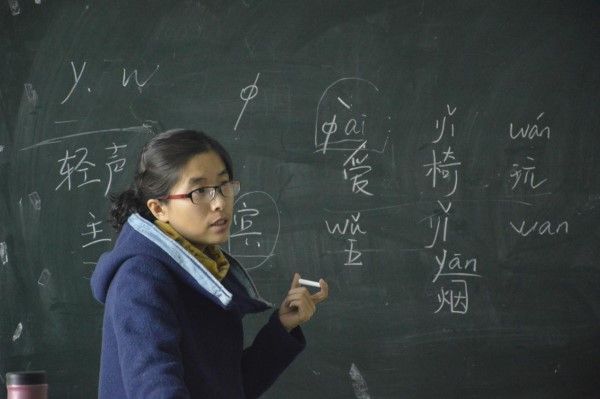 y、w φ φài yǐ wán
轻声 爱 椅 玩
主 宾 wǔ yǐ wan
五 yān
烟